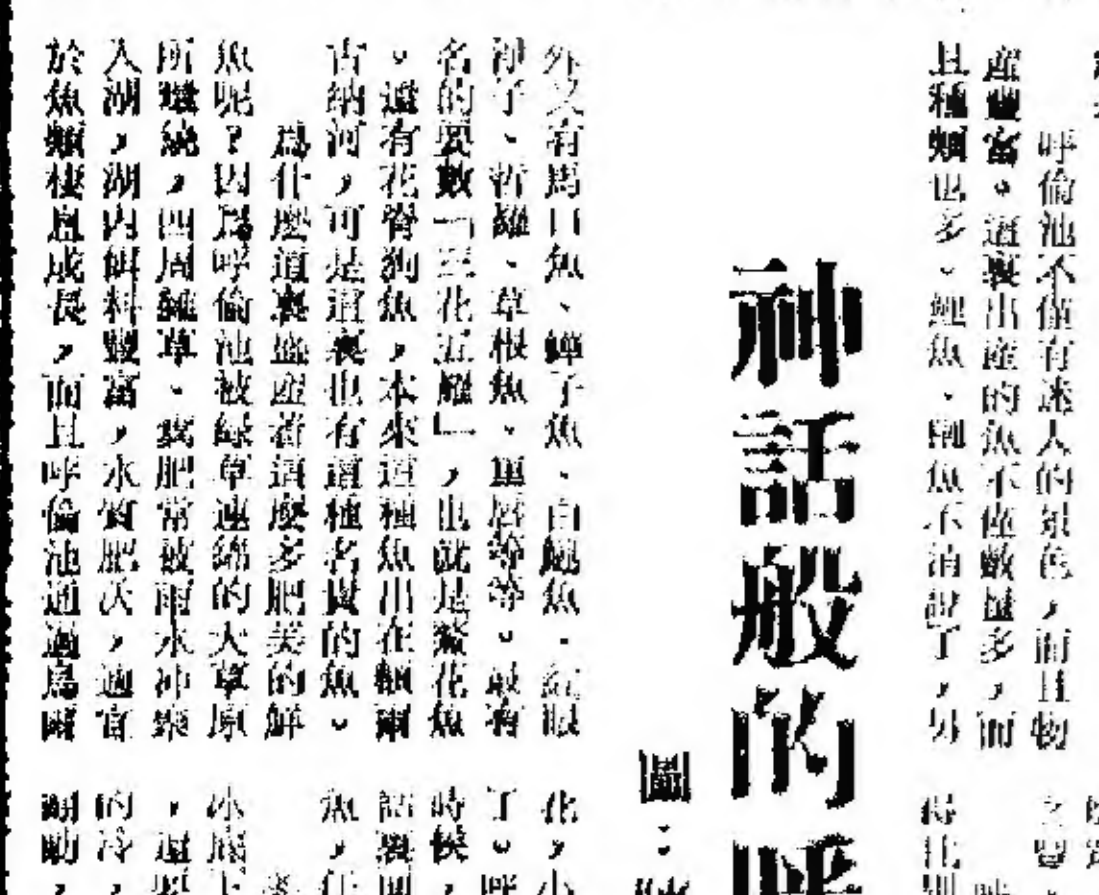 呼倫池不僅有迷人的景色，而且物
產豐富。這裏出產的魚不僅數量多，而
且種類也多。鯉魚、鯽魚不消說了，另
神話般的呼
圖：陳
外又有馬口魚、蟬子魚、白
魚、紅眼
子、哲羅、草根魚、重唇等等。最有
名的要數「三花五羅」，也就是鰲花魚
。還有花脊狗魚，本來這種魚出在額爾
古納河，可是這裏也有這種名貴的魚。
爲什麼這裏盛産着這麼多肥美的鮮
魚呢？因爲呼倫池被綠草連綿的大草原
所環繞，四周雜草、糞肥常被雨水冲集
入湖，湖內餌料豐富，水質肥沃，適宜
於魚類棲息成長，而且呼倫池通過烏爾
花，小
了。呼
時候，
話裏
魚，任
冰底上
，還要
的冷，
翻動，